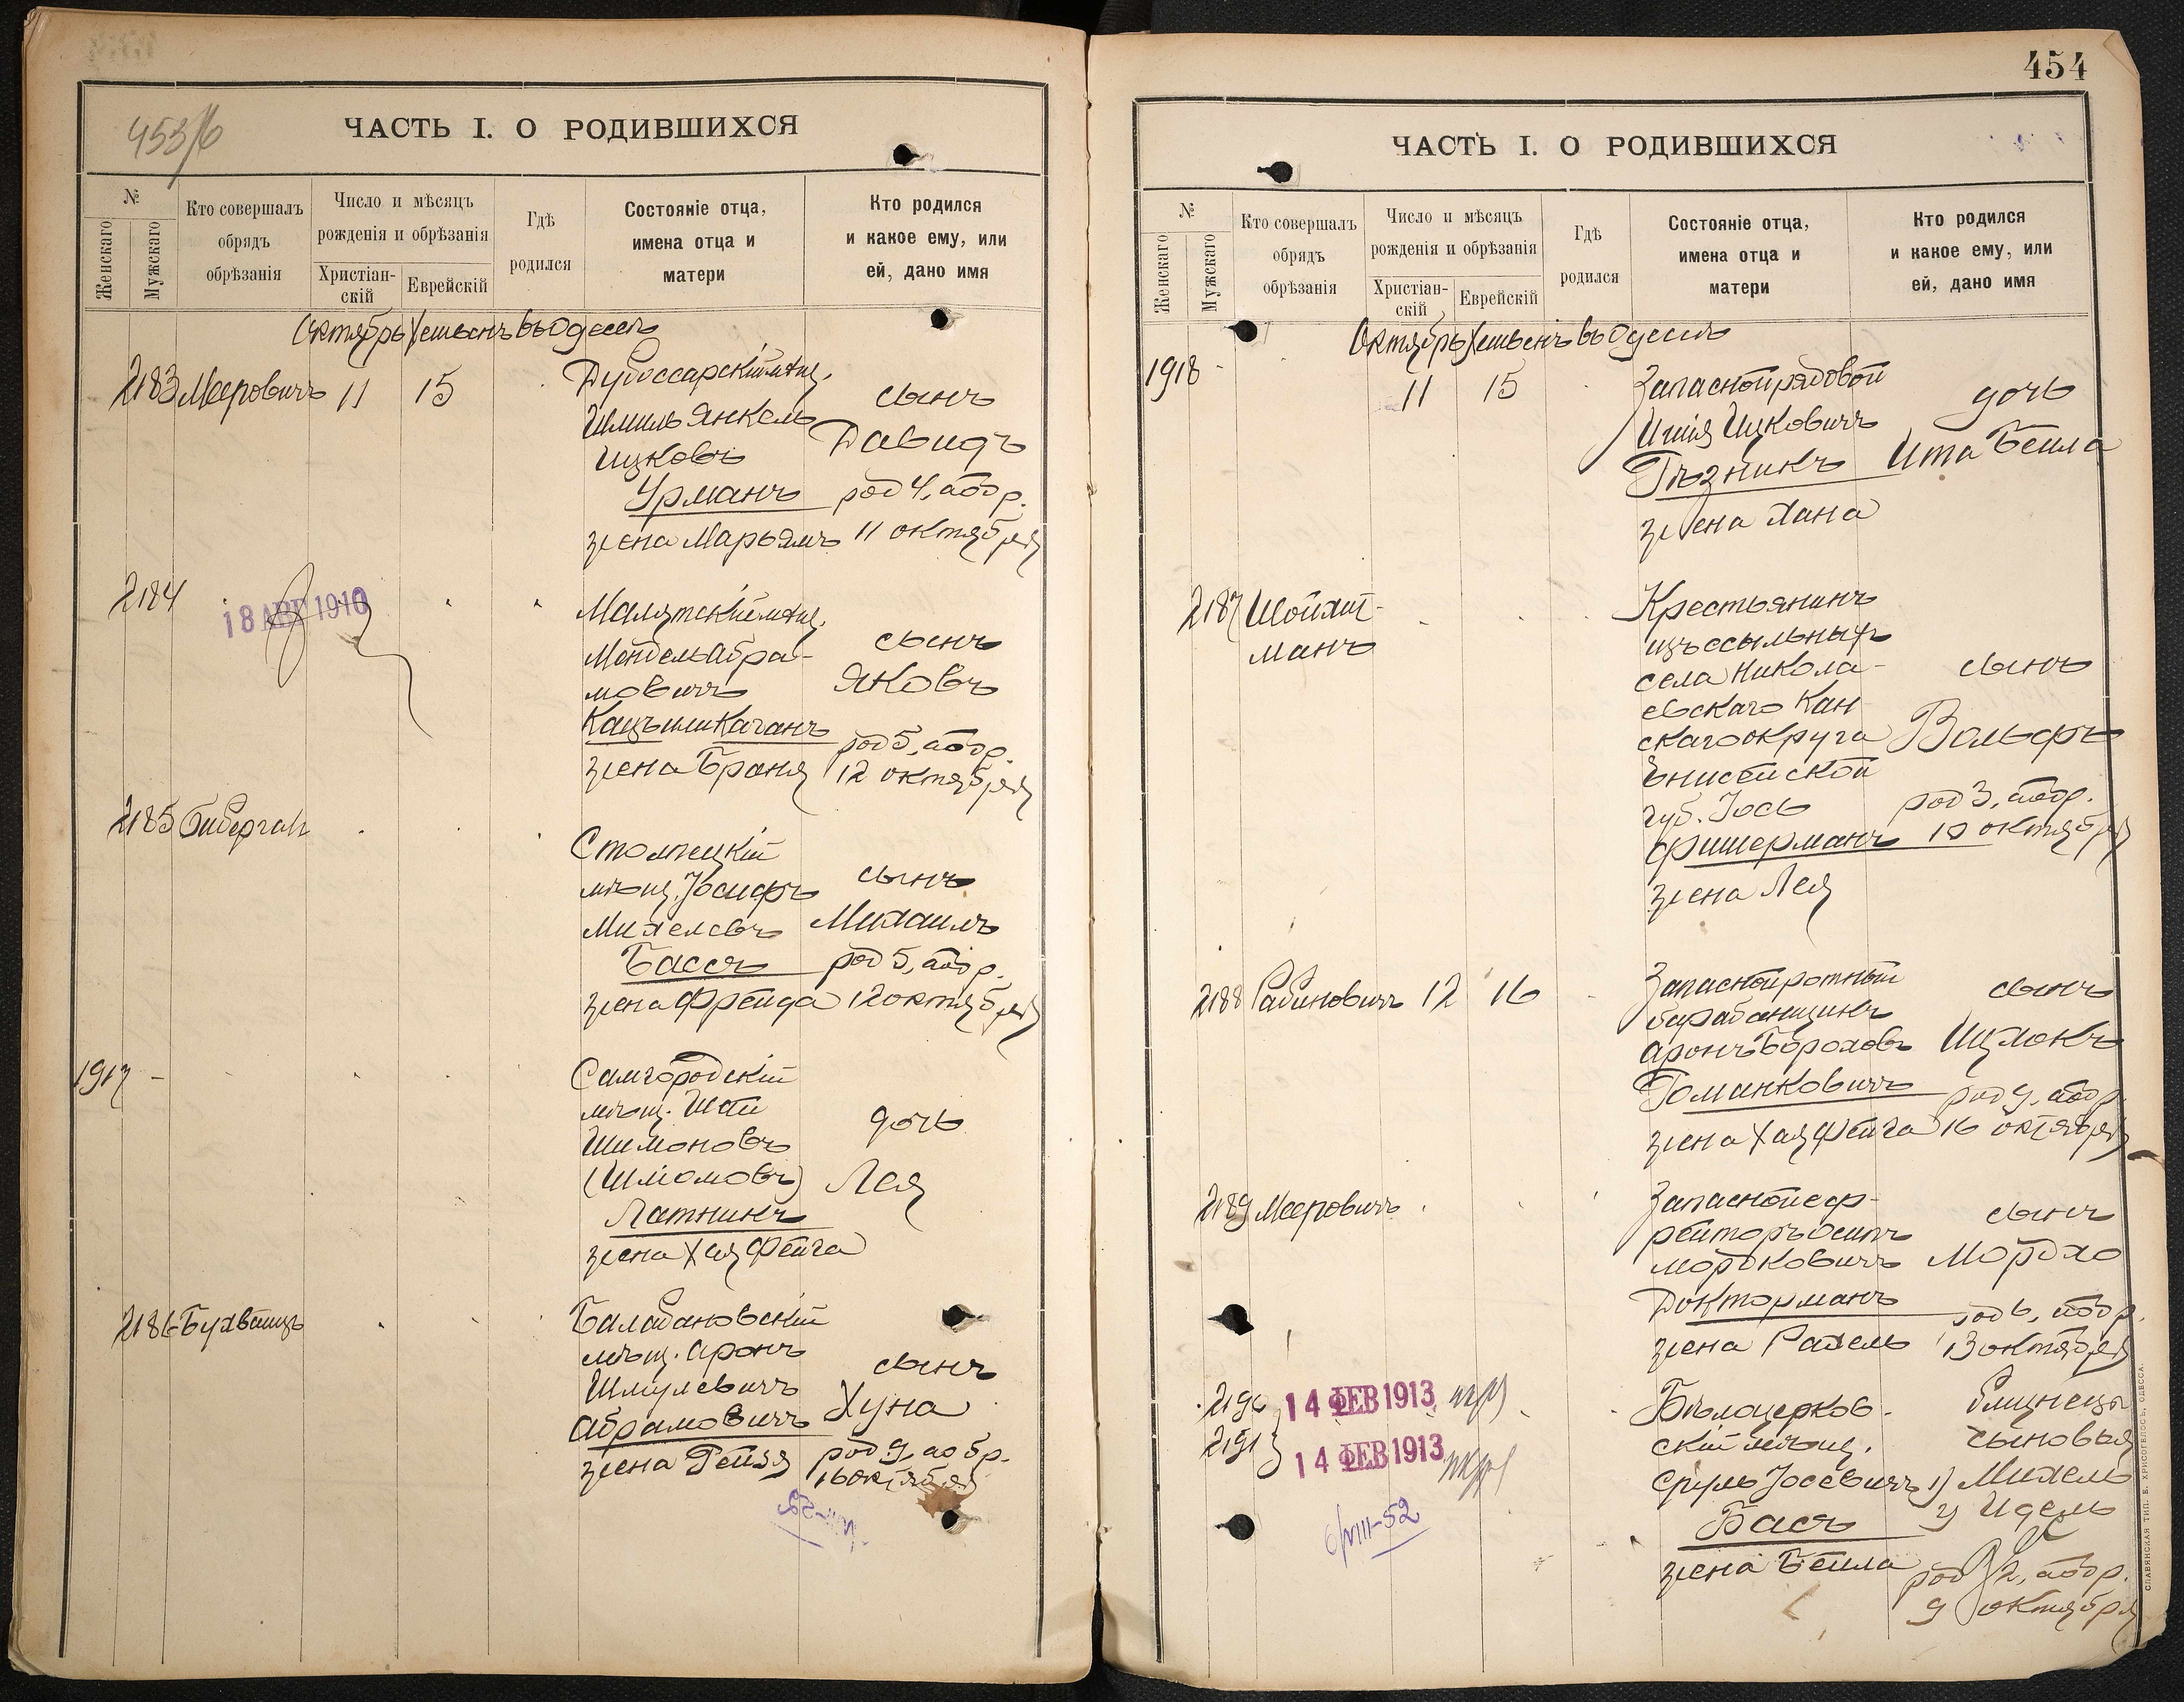 453/б
ЧАСТЬ I. О РОДИВШИХСЯ
№
Женскаго
Мужскаго
Кто совершалъ
обрядъ
обрѣзанія
Число и мѣсяцъ
рожденія и обрѣзанія
Христіан-
скій
Еврейскій
Гдѣ
родился
Состояніе отца,
имена отца и
матери
Кто родился
и какое ему, или
ей, дано имя
Октябрь Хешванъ въ Одессѣ
2183 Мееровичъ 11 15
Дубоссарскій мѣщ.
Шмиль Янкель
Ицковъ
Урманъ
жена Марьямъ
сынъ
Давидъ
род 4, аобр.
11 октября
2184
18 АВГ 1910
мѣщ.
Мендель Абра-
мовичъ
Кацъ или Каганъ
жена Браня
сынъ
Яковъ
род 5, аобр.
12 октября
2185 Биберган
Столпецкій
мѣщ. Іосифъ
Михелевъ
Бассъ
жена Фрейда
сынъ
Михаилъ
род 5, аобр.
12 октября
1917 -
Самгородскій
мѣщ.
Шимоновъ
(Шліомовъ)
Латникъ
жена Хая Фейга
дочь
Лея
2186 Бухбаицъ
Балабановскій
мѣщ. Аронъ
Шмулевичъ
Абрамовичъ
жена Гейзя
сынъ
Хуна
род 9, аобр.
16 октября
454
ЧАСТЬ I. О РОДИВШИХСЯ
№
Женскаго
Мужскаго
Кто совершалъ
обрядъ
обрѣзанія
Число и мѣсяцъ
рожденія и обрѣзанія
Христіан-
скій
Еврейскій
Гдѣ
родился
Состояніе отца,
имена отца и
матери
Кто родился
и какое ему, или
ей, дано имя
Октябрь Хешванъ въ Одессѣ
1918 - 11 15
Запасной рядовой
Ицковичъ
Гѣзникъ
жена Хана
дочь
Ита Бейла
2187 Шойхит-
манъ
Крестьянинъ
изъ ссыльныхъ
села Никола-
евскаго Кан
скаго округа
Енисейской
губ. Іось
Фишерманъ
жена Лея
сынъ
Вольфъ
род 3, аобр.
10 октября
2188 Рабиновичъ 12 16
Запасной ротный
барабанщикъ
Аронъ Бороховъ
Романковичъ
жена Хая Фейга
сынъ
Ицхокъ
род 9, аобр.
16 октября
2189 Мееровичъ
Запасной еф-
рейторъ Осипъ
Мордковичъ
Докторманъ
жена Рахель
сынъ
Мордхо
род 6, аобр.
13 октября
2190 14 ФЕВ 1913
2191 14 ФЕВ 1913
6/VIII-52
Бѣлоцерков-
скій мѣщ.
Сруль Іосевичъ
Басъ
жена Бейла
близнецы
сыновья
1) Михель
2) Идель
род 2, аобр.
9 октября
СЛАВЯНСКАЯ ТИП. Е. ХРИСОГЕЛОСЪ, ОДЕССА.